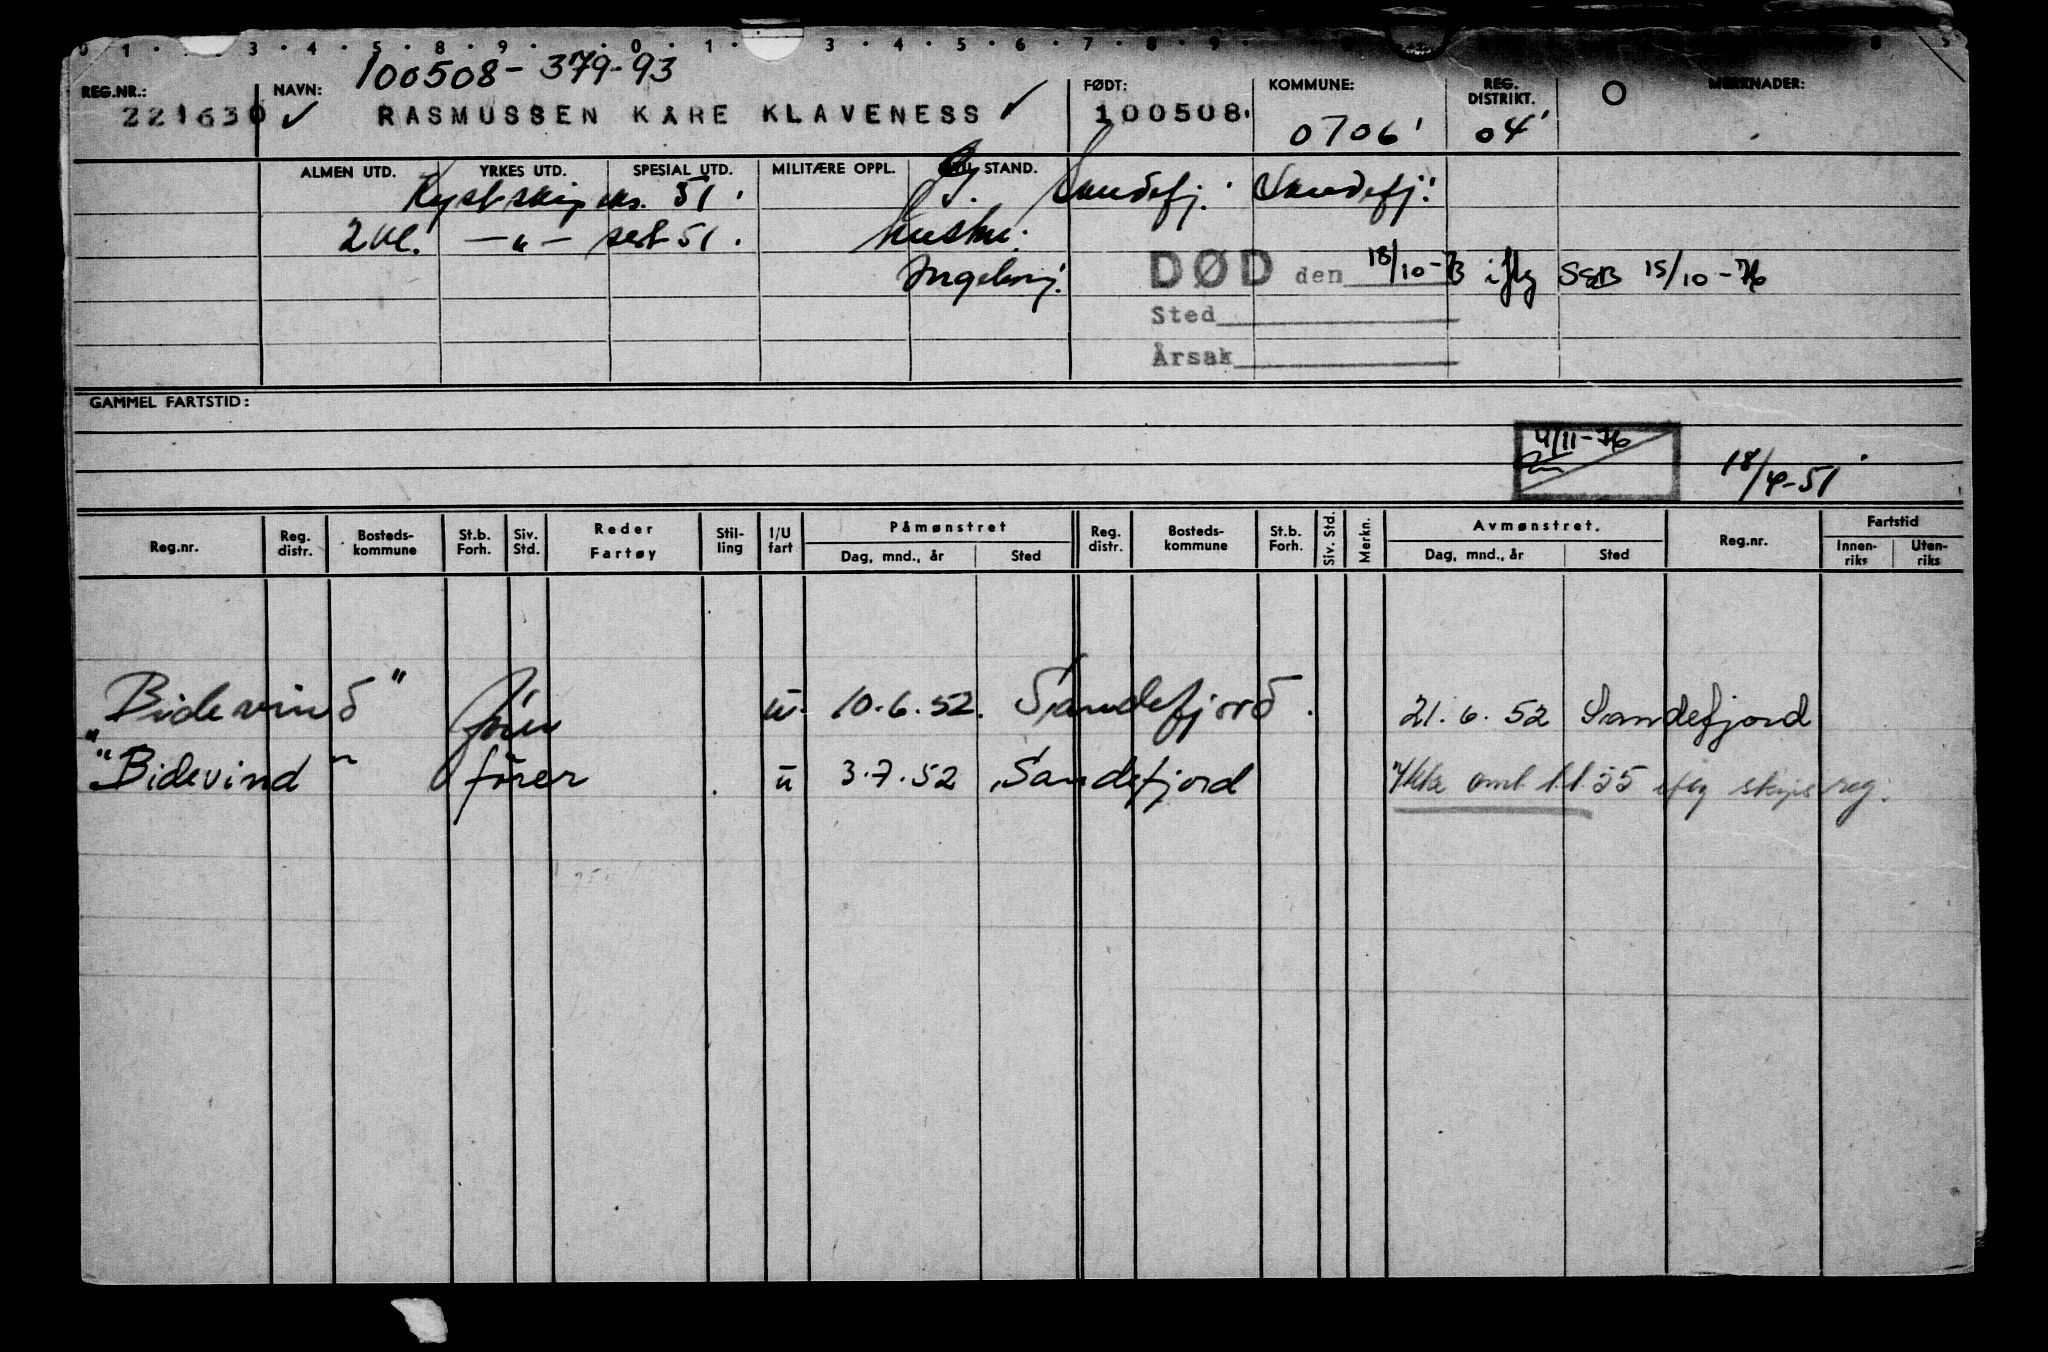 0 1 · 3 · 4 · 5 · 8 · 9 · 0 · 1 · 3 · 4 · 5 · 6 · 7 · 8 · 9
100508-379-93
REG.NR.: NAVN: FØDT: KOMMUNE: REG. DISTRIKT. MERKNADER:
221630 ✓ RASMUSSEN KÅRE KLAVENESS ✓ 100508. 0706 04
ALMEN UTD. YRKES UTD. SPESIAL UTD. MILITÆRE OPPL. STAND.
Kystskip eks. 51. g. Sandefj. Sandefj.
2 kl. —"— sert 51. hustru:
Ingeborg. DØD den 18/10-73 iflg SSB 15/10-76
Sted
Årsak
GAMMEL FARTSTID:
4/11-76
18/4-51
Reg.nr. Reg. distr. Bosteds-kommune St.b. Forh. Siv. Std. Reder Fartøy Stil-ling I/U fart Påmønstret Reg. distr. Bosteds-kommune St.b. Forh. Siv. Std. Merkn. Avmønstret. Reg.nr. Fartstid
Dag, mnd., år Sted Dag, mnd., år Sted Innen-riks Uten-riks
"Bidevind" fører u. 10.6.52. Sandefjord. 21.6.52 Sandefjord
"Bidevind" fører u 3.7.52 Sandefjord Ikke oml 1.1.55 iflg skipsreg.